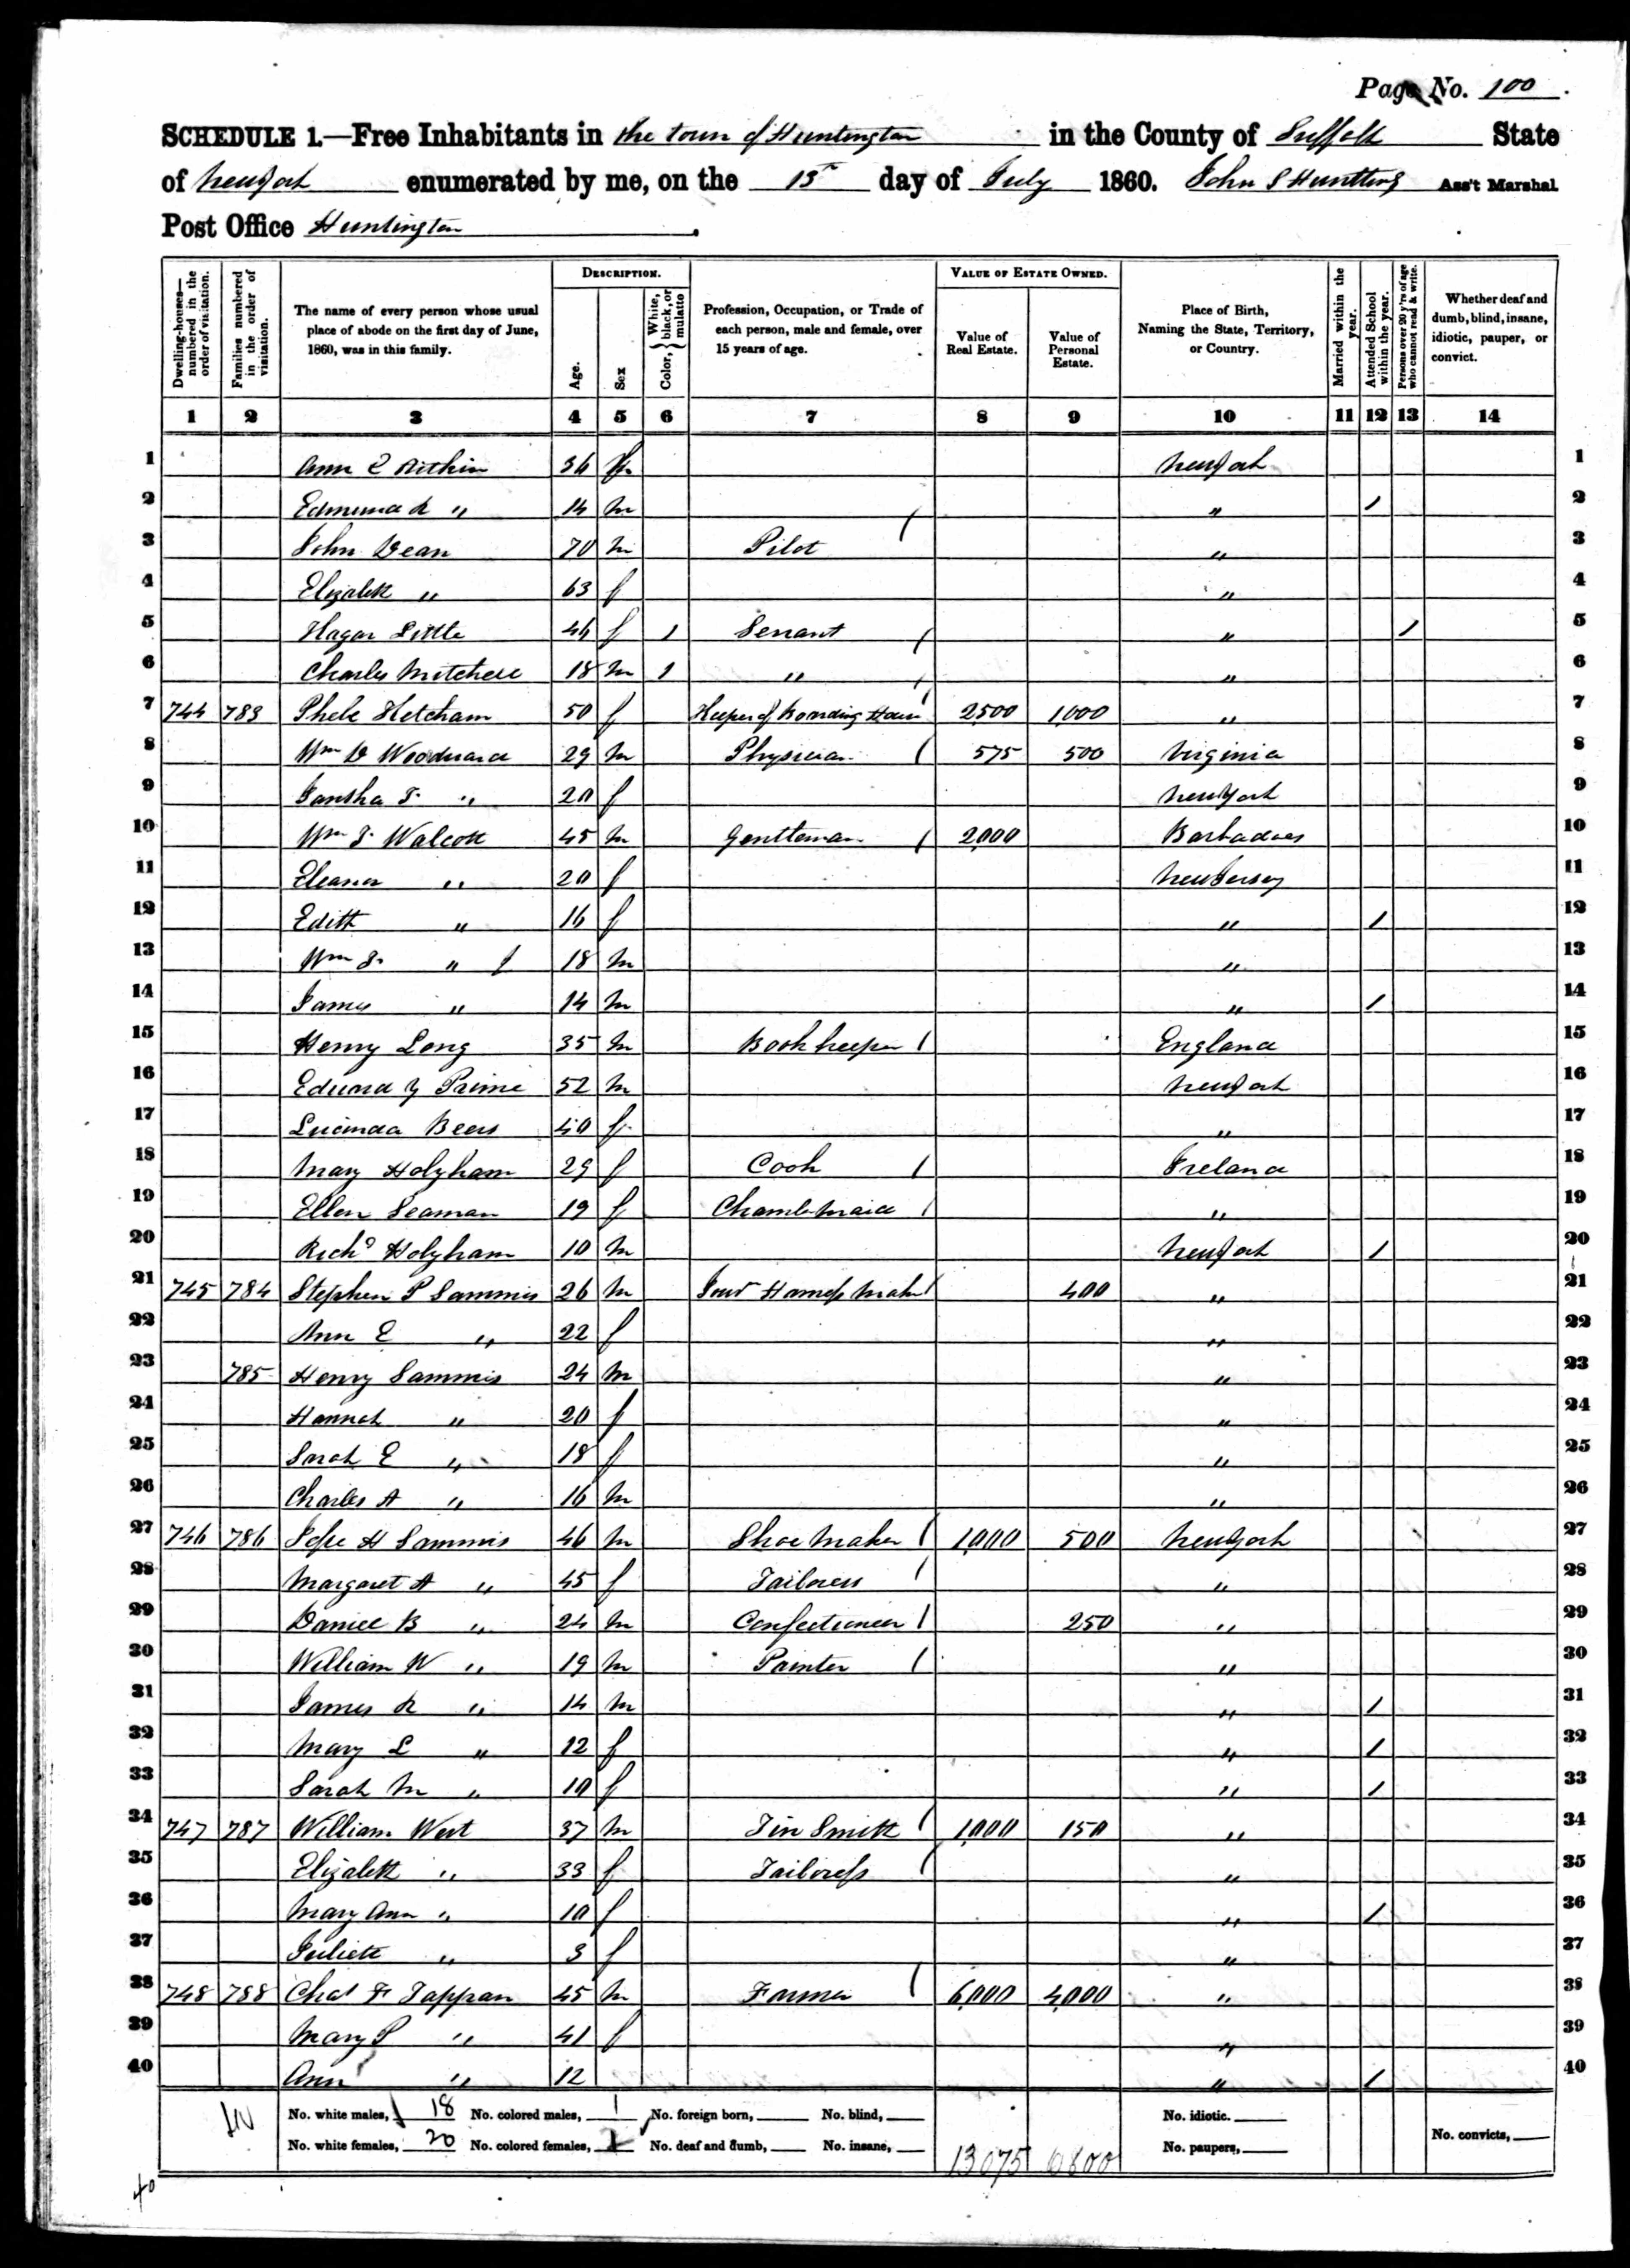 Page No. 100.
SCHEDULE 1.—Free Inhabitants in the town of Huntington in the County of Suffolk State
of New York enumerated by me, on the 13th day of July 1860. John S Huntting Ass't Marshal
Post Office Huntington.
Dwelling-houses—numbered in the order of visitation. Families numbered in the order of visitation. The name of every person whose usual place of abode on the first day of June, 1860, was in this family. DESCRIPTION. Age. Sex Color, { White, black, or mulatto Profession, Occupation, or Trade of each person, male and female, over 15 years of age. VALUE OF ESTATE OWNED. Value of Real Estate. Value of Personal Estate. Place of Birth, Naming the State, Territory, or Country. Married within the year. Attended School within the year. Persons over 20 y'rs of age who cannot read & write. Whether deaf and dumb, blind, insane, idiotic, pauper, or convict.
1 2 3 4 5 6 7 8 9 10 11 12 13 14
1 Ann E 36 f New York 1
2 Edmund R " 14 m " / 2
3 John Dean 70 m Pilot " 3
4 Elizabeth " 63 f " 4
5 Hagar Little 46 f 1 Servant " / 5
6 Charles Mitchell 18 m 1 " " 6
7 744 783 Phebe Ketcham 50 f Keeper of Boarding House 2500 1000 " 7
8 Wm D Woodward 29 m Physician 575 500 Virginia 8
9 20 f New York 9
10 Wm T Walcott 45 m Gentleman 2000 Barbadoes 10
11 Eleanor " 20 f New Jersey 11
12 Edith " 16 f " / 12
13 Wm T " 18 m " 13
14 James " 14 m " / 14
15 Henry Long 35 m Book keeper England 15
16 Edward Y Prime 52 m New York 16
17 Lucinda Beers 40 f " 17
18 Mary Holyham 29 f Cook Ireland 18
19 Ellen Seaman 19 f Chambmaid " 19
20 Richd Holyham 10 m New York / 20
21 745 784 Stephen P Sammis 26 m Jour Harness Maker 400 " 21
22 Ann E " 22 f " 22
23 785 Henry Sammis 24 m " 23
24 Hannah " 20 f " 24
25 Sarah E " 18 f " 25
26 Charles A " 16 m " 26
27 746 786 Jesse H Sammis 46 m Shoe Maker 1000 500 New York 27
28 Margaret A " 45 f Tailoress " 28
29 Daniel B " 24 m Confectioner 250 " 29
30 William W " 19 m Painter " 30
31 James R " 14 m " / 31
32 Mary L " 12 f " / 32
33 Sarah M " 10 f " / 33
34 747 787 William West 37 m Tin Smith 1000 150 " 34
35 Elizabeth " 33 f Tailoress " 35
36 Mary Ann " 10 f " / 36
37 Juliett " 3 f " 37
38 748 788 Chas F Tappan 45 m Farmer 6000 4000 " 38
39 Mary P " 41 f " 39
40 Ann " 12 " / 40
No. white males, 18 No. colored males, 1 No. foreign born, No. blind, No. idiotic.
No. white females, 20 No. colored females, No. deaf and dumb, No. insane, 13075 6800 No. paupers, No. convicts,
40